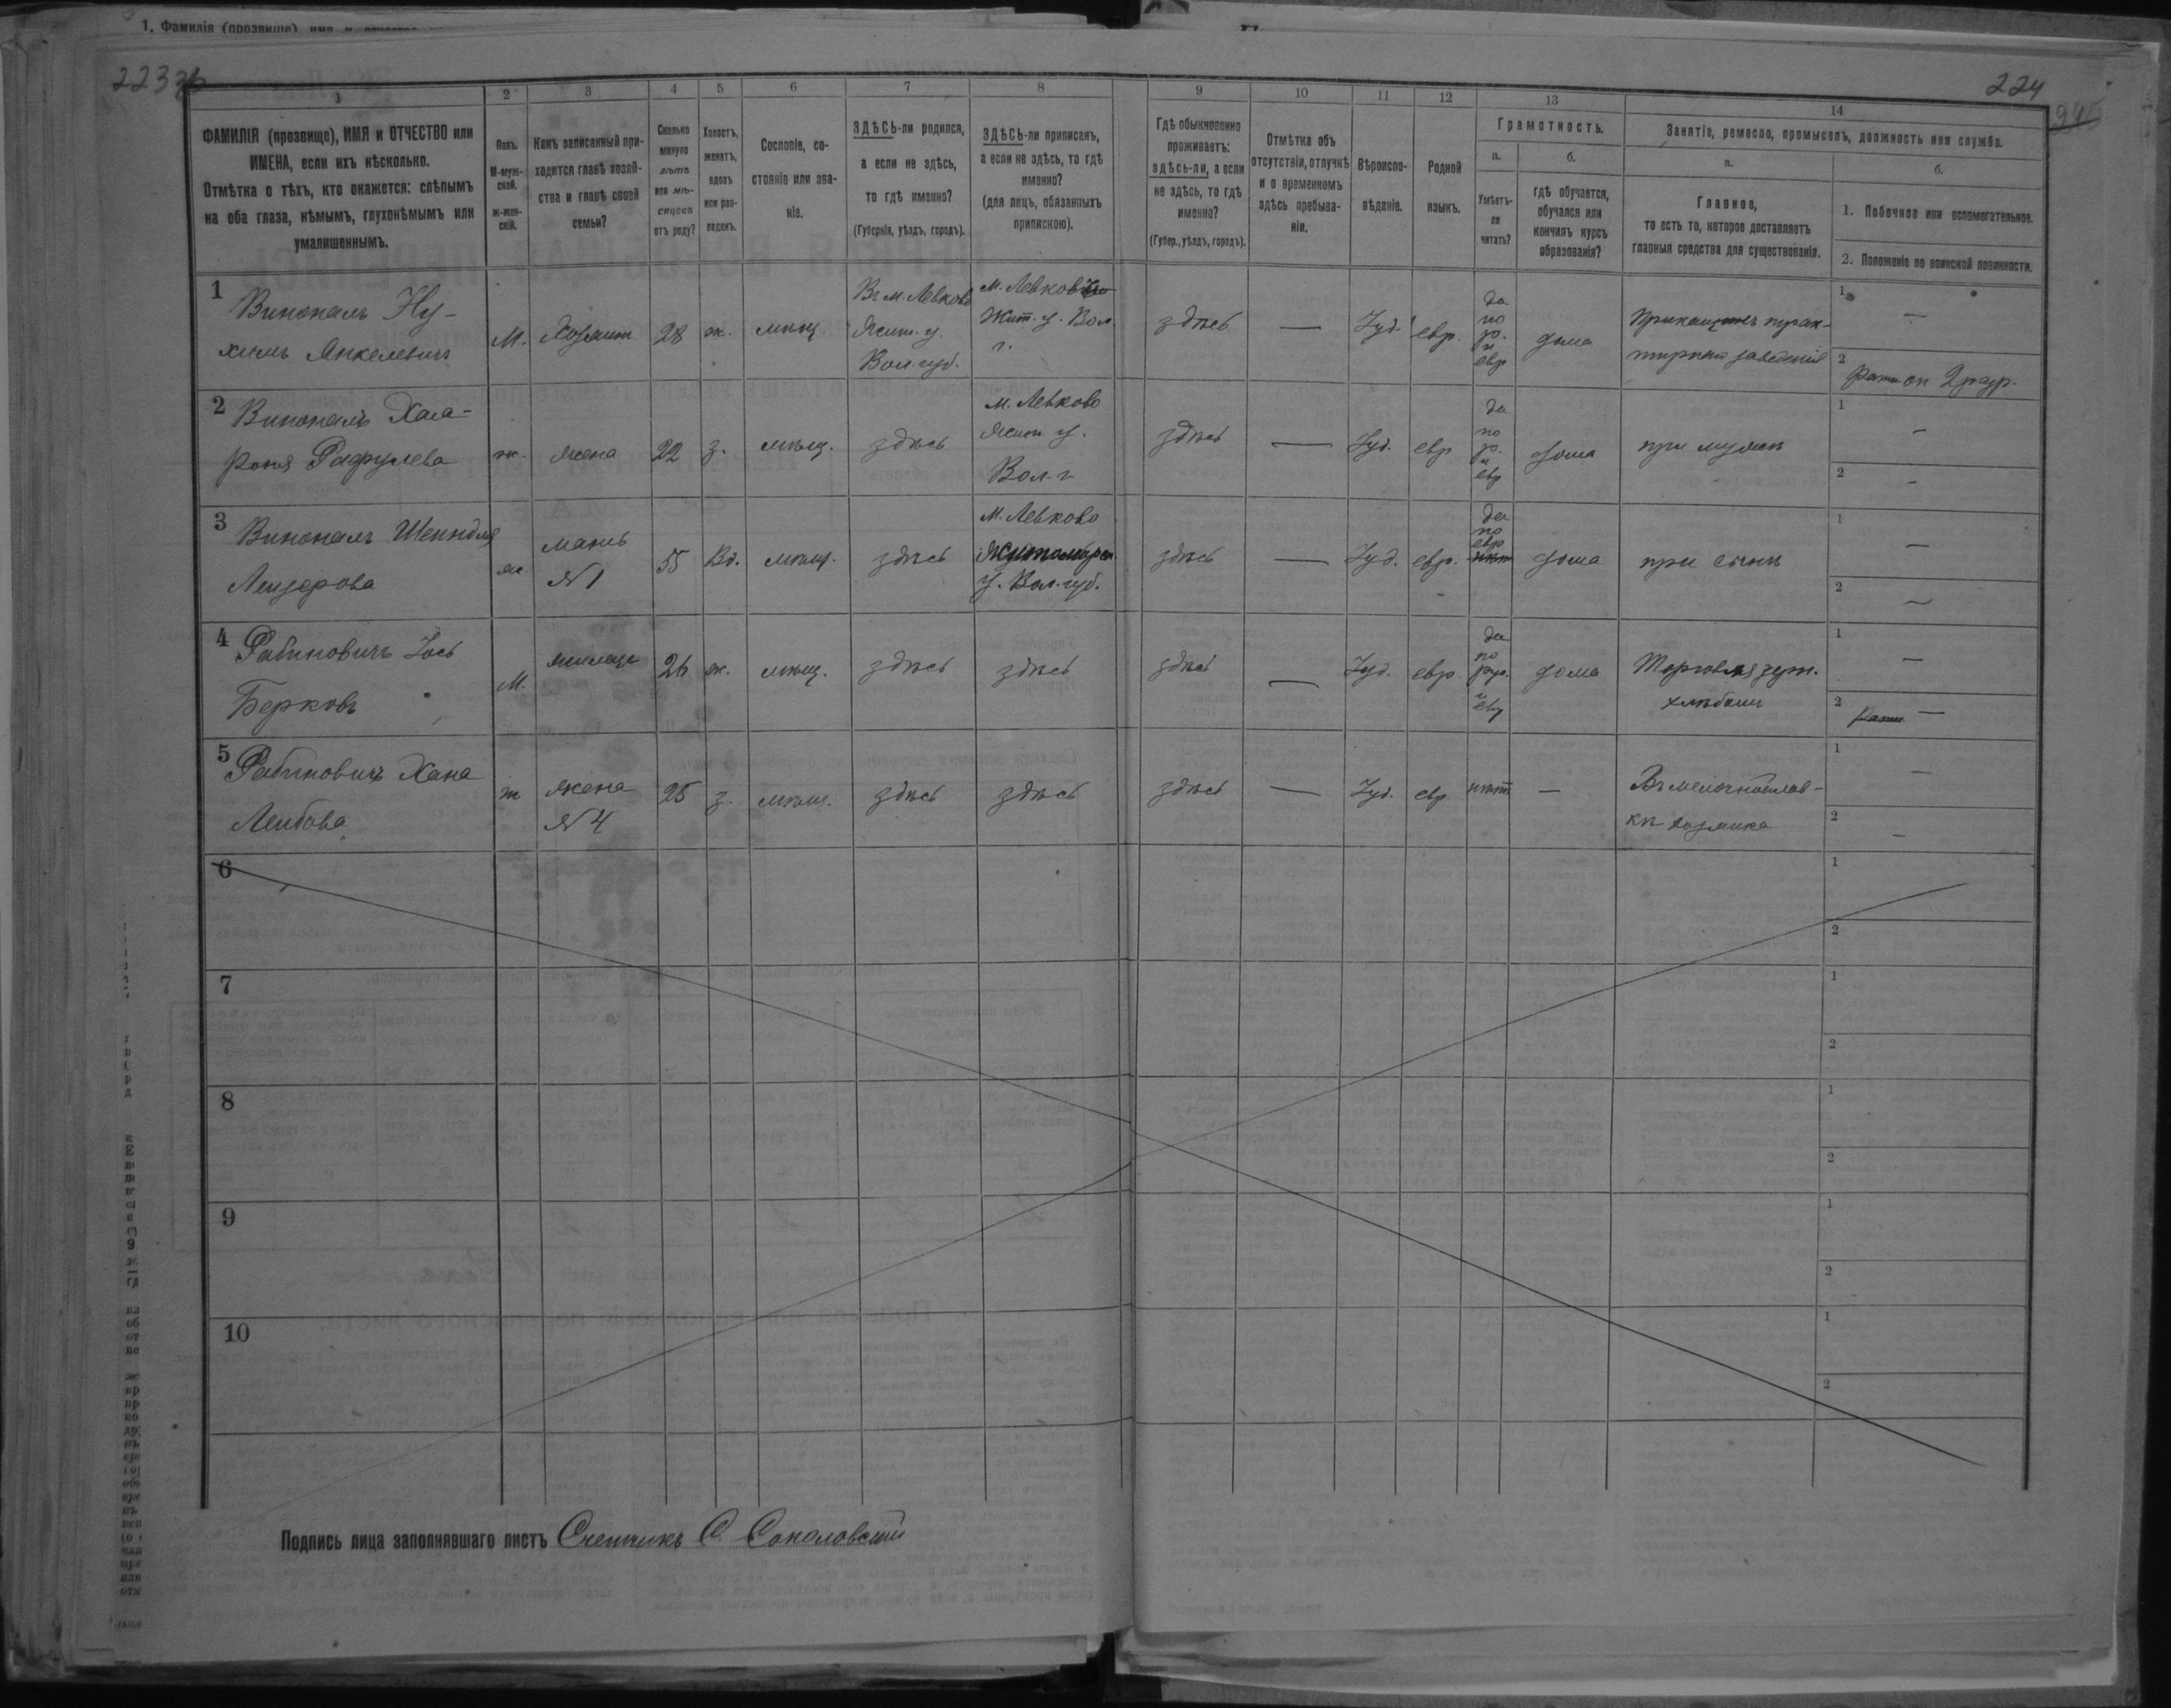 1. Фамилія (прозвище)
223
224
1
2
3
4
5
6
7
8
9
10
11
12
13
14
ФАМИЛІЯ (прозвище), ИМЯ и ОТЧЕСТВО или
ИМЕНА, если ихъ нѣсколько.
Отмѣтка о тѣхъ, кто окажется: слѣпымъ
на оба глаза, нѣмымъ, глухонѣмымъ или
умалишеннымъ.
Полъ.
М-муж-
ской.
ж-жен-
скій.
Какъ записанный при-
ходится главѣ хозяй-
ства и главѣ своей
семьи?
Сколько
минуло
лѣтъ
или мѣ-
сяцевъ
отъ роду?
Холостъ,
женатъ,
вдовъ
или раз-
веденъ.
Сословіе, со-
стояніе или зва-
ніе.
ЗДѢСЬ-ли родился,
а если не здѣсь,
то гдѣ именно?
(Губернія, уѣздъ, городъ).
ЗДѢСЬ-ли приписанъ,
а если не здѣсь, то гдѣ
именно?
(для лицъ, обязанныхъ
припискою).
Гдѣ обыкновенно
проживаетъ:
здѣсь-ли, а если
не здѣсь, то гдѣ
именно?
(Губер., уѣздъ, городъ).
Отмѣтка объ
отсутствіи, отлучкѣ
и о временномъ
здѣсь пребыва-
ніи.
Вѣроиспо-
вѣданіе.
Родной
языкъ.
Грамотность.
а.
б.
Умѣетъ-
ли
читать?
гдѣ обучается,
обучался или
кончилъ курсъ
образованія?
Занятіе, ремесло, промыселъ, должность или служба.
а.
б.
Главное,
то есть то, которое доставляетъ
главныя средства для существованія.
1. Побочное или вспомогательное.
2. Положеніе по воинской повинности.
1
Виноналъ Ну-
химъ Янкелевичъ
М. Хозяинъ 28 ж. мѣщ
Въ м. Левково
Жит. у.
Вол. губ.
м. Левково
Жит. у. Вол.
г.
здѣсь — Іуд. евр.
да
по
ру.
и
евр
дома
Прикащикъ трак-
тирнаго заведенія
1 —
2 Ратн оп 2 разр.
2
Виноналъ Хая-
Рейзя Рафулева
ж. жена 22 з. мѣщ. здѣсь
м. Левково
Жит. у.
Вол. г
здѣсь — Іуд. евр
да
по
ру.
и
евр
дома при мужѣ
1 —
2 -
3
Виноналъ Шейндля
Лейзерова
ж.
мать
№ 1
55 Вд. мѣщ. здѣсь
м. Левково
Житомірск
у. Вол. губ.
здѣсь — Іуд. евр.
да
по
евр
дома при сынѣ
1 —
2 —
4
Рабиновичъ Іось
Берковъ
М. жилецъ 26 ж. мѣщ. здѣсь здѣсь здѣсь — Іуд. евр.
да
по
ру.
и
евр
дома
Торговля зерн.
хлѣбомъ
1 —
2 —
5
Рабиновичъ Хана
Лейбова
ж
жена
№ 4
25 з. мѣщ. здѣсь здѣсь здѣсь — Іуд. евр нѣтъ —
Въ мелочной лав-
кѣ хозяйка
1 —
2 -
6
1
2
7
1
2
8
1
2
9
1
2
10
1
2
Подпись лица заполнявшаго листъ Счетчикъ С. Соколовскій